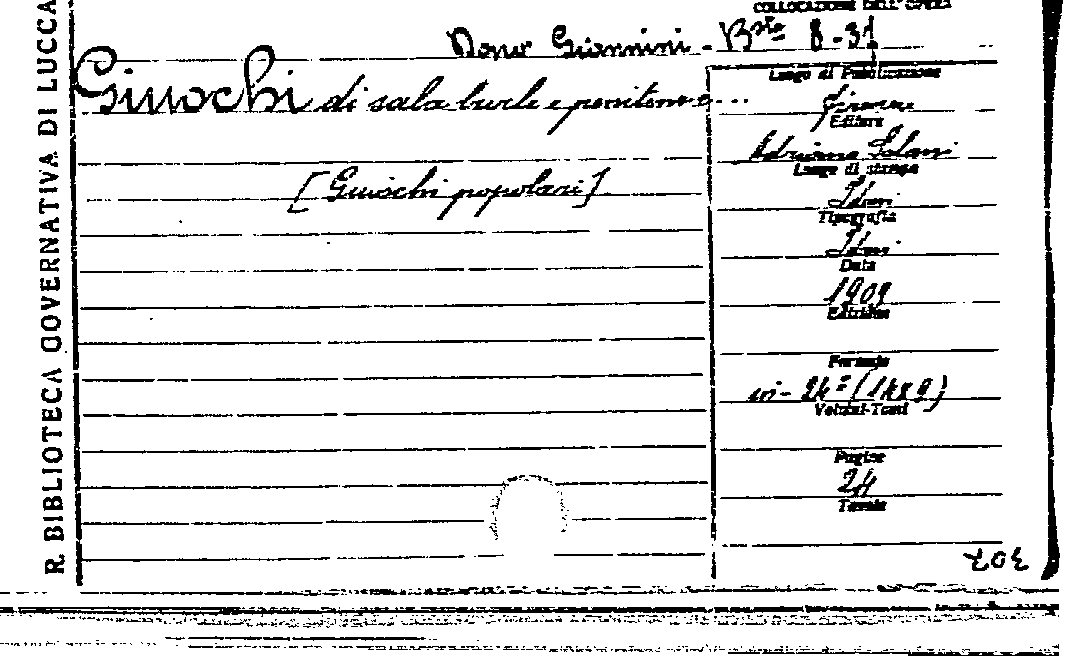 R. BIBLIOTECA GOVERNATIVA DI LUCCA
COLLOCAZIONE DELL'OPERA
Dono Giannini - Bsta 8-31
Giuochi di sala burle e penitenze...
[Giuochi popolari]
Luogo di Pubblicazione
Firenze
Editore
Adriano Salani
Luogo di stampa
Idem
Tipografia
Idem
Data
1909
Edizione
Formato
in-24° (14x9)
Volumi-Tomi
Pagine
24
Tavole